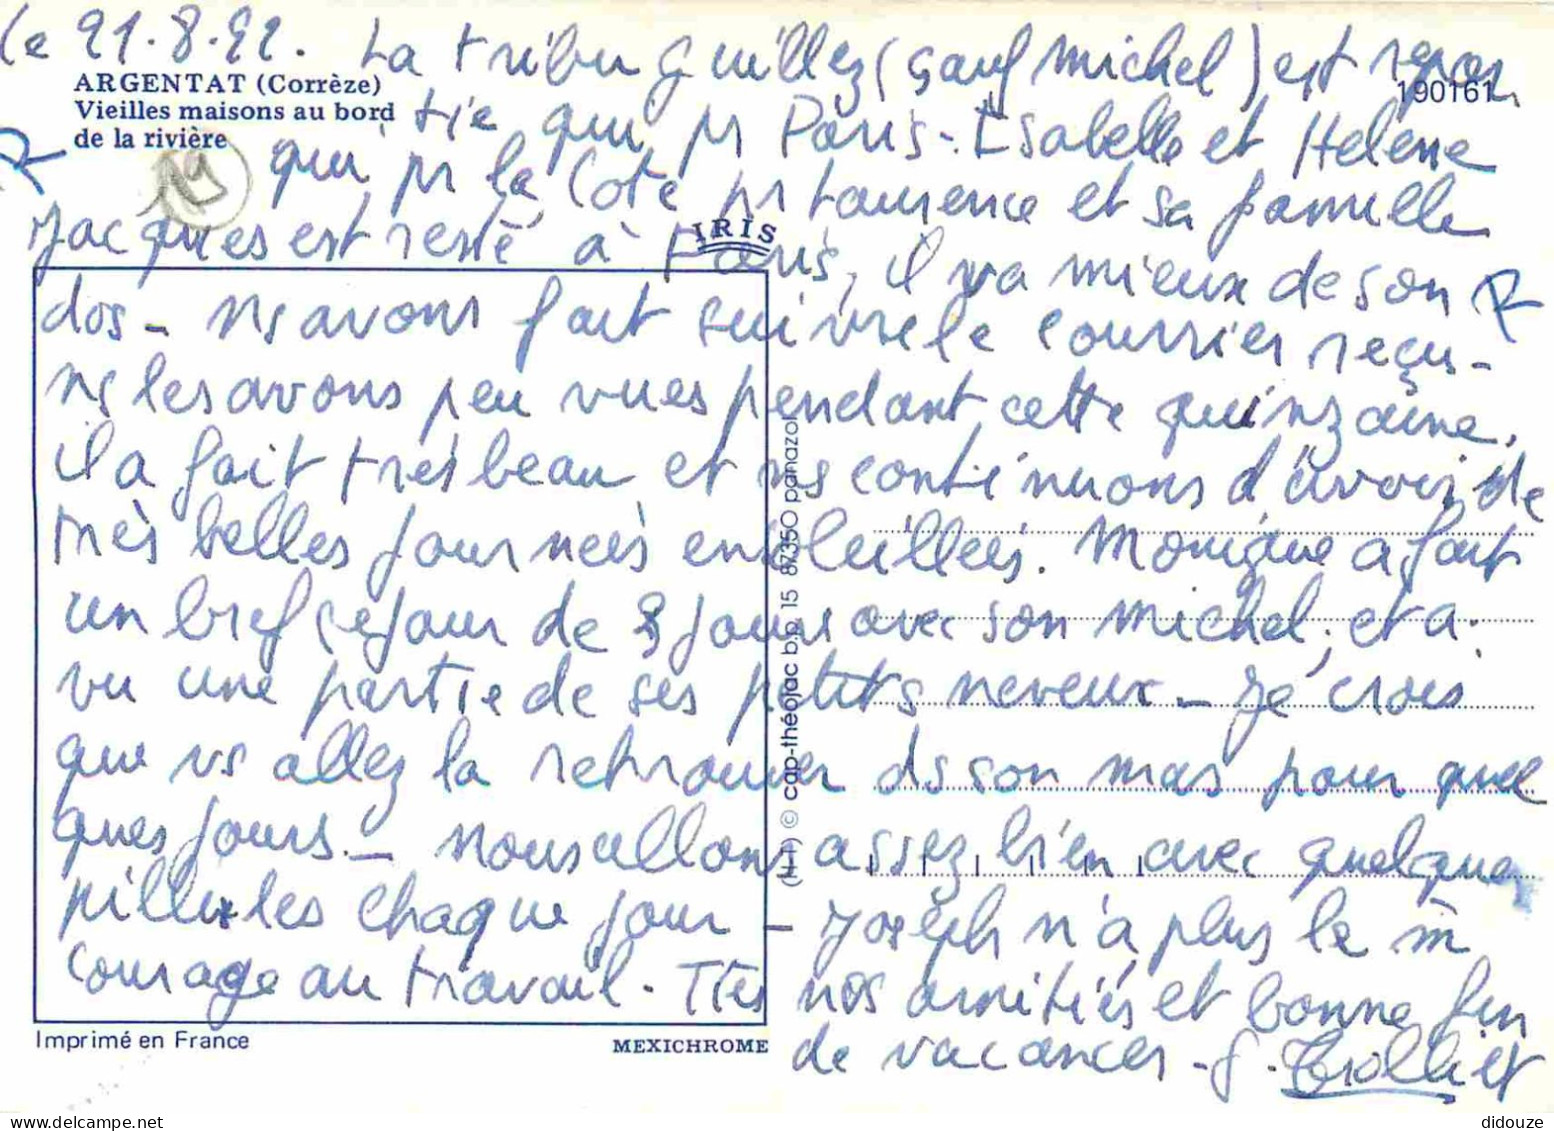 le 21.8.92. La tribu Guillez (sauf Michel) est repar
ARGENTAT (Corrèze)
190161
Vieilles maisons au bord
de la rivière
tie qui pr Paris - Isabelle et Helene
R
19
qui pr la Cote pr Laurence et sa famille
Jacques est resté à Paris, il va mieux de son
IRIS
R
dos - ns avons fait suivre le courrier reçu -
ns les avons peu vues pendant cette quinzaine.
il a fait très beau et ns continuons d'avoir de
très belles journées ensoleillées. Monique a fait
un bref séjour de 8 jours avec son Michel, et a
vu une partie de ses petits neveux - Je crois
que vs allez la retrouver ds son mas pour quel
ques jours - nous allons assez bien avec quelques
pillules chaque jour - Joseph n'a plus le m̄
courage au travail. Ttes nos amitiés et bonne fin
de vacances - J. Trolliet
(H-T) © cap-théojac b.p. 15 87350 panazol
Imprimé en France
MEXICHROME
didouze